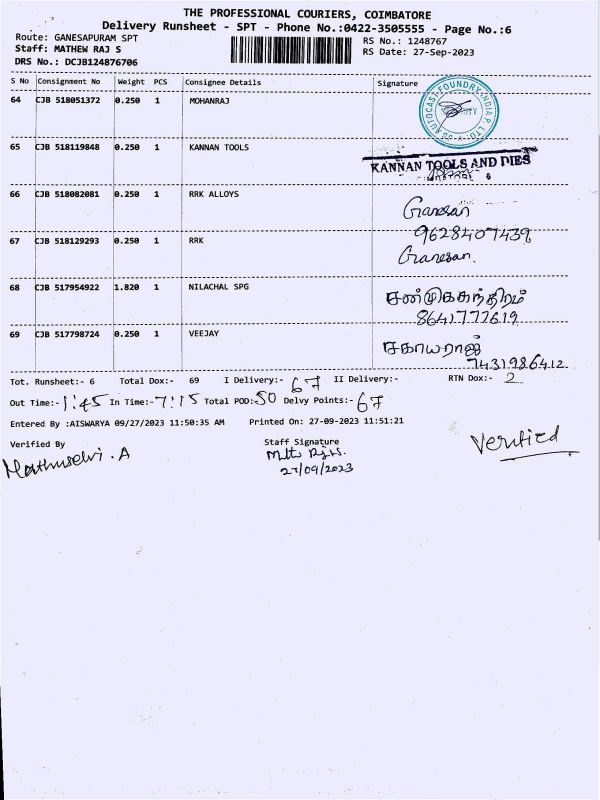 THE PROFESSIONAL COURIERS, COIMBATORE
Delivery Runsheet - SPT - Phone No.:0422-3505555 - Page No.:6
Route: GANESAPURAM SPT
RS No.: 1248767
Staff: MATHEW RAJ S
RS Date: 27-Sep-2023
DRS No.: DCJB124876706
S No Consignment No Weight PCS Consignee Details Signature
64 CJB 518051372 0.250 1 MOHANRAJ
AUTOCAST FOUNDRY INDIA P. LTD.
65 CJB 518119848 0.250 1 KANNAN TOOLS
KANNAN TOOLS AND DIES
66 CJB 518082081 0.250 1 RRK ALLOYS
Ganesan
9628407439
67 CJB 518129293 0.250 1 RRK
Ganesan.
68 CJB 517954922 1.820 1 NILACHAL SPG
சண்முகசுந்திரம்
8641777619
69 CJB 517798724 0.250 1 VEEJAY
சகாயராஜ்
7431986412
Tot. Runsheet:- 6 Total Dox:- 69 I Delivery:- 67 II Delivery:- RTN Dox:- 2
Out Time:- 1:45 In Time:- 7:15 Total POD:- 50 Delvy Points:- 67
Entered By :AISWARYA 09/27/2023 11:50:35 AM Printed On: 27-09-2023 11:51:21
Verified By
Staff Signature
Verified
27/09/2023